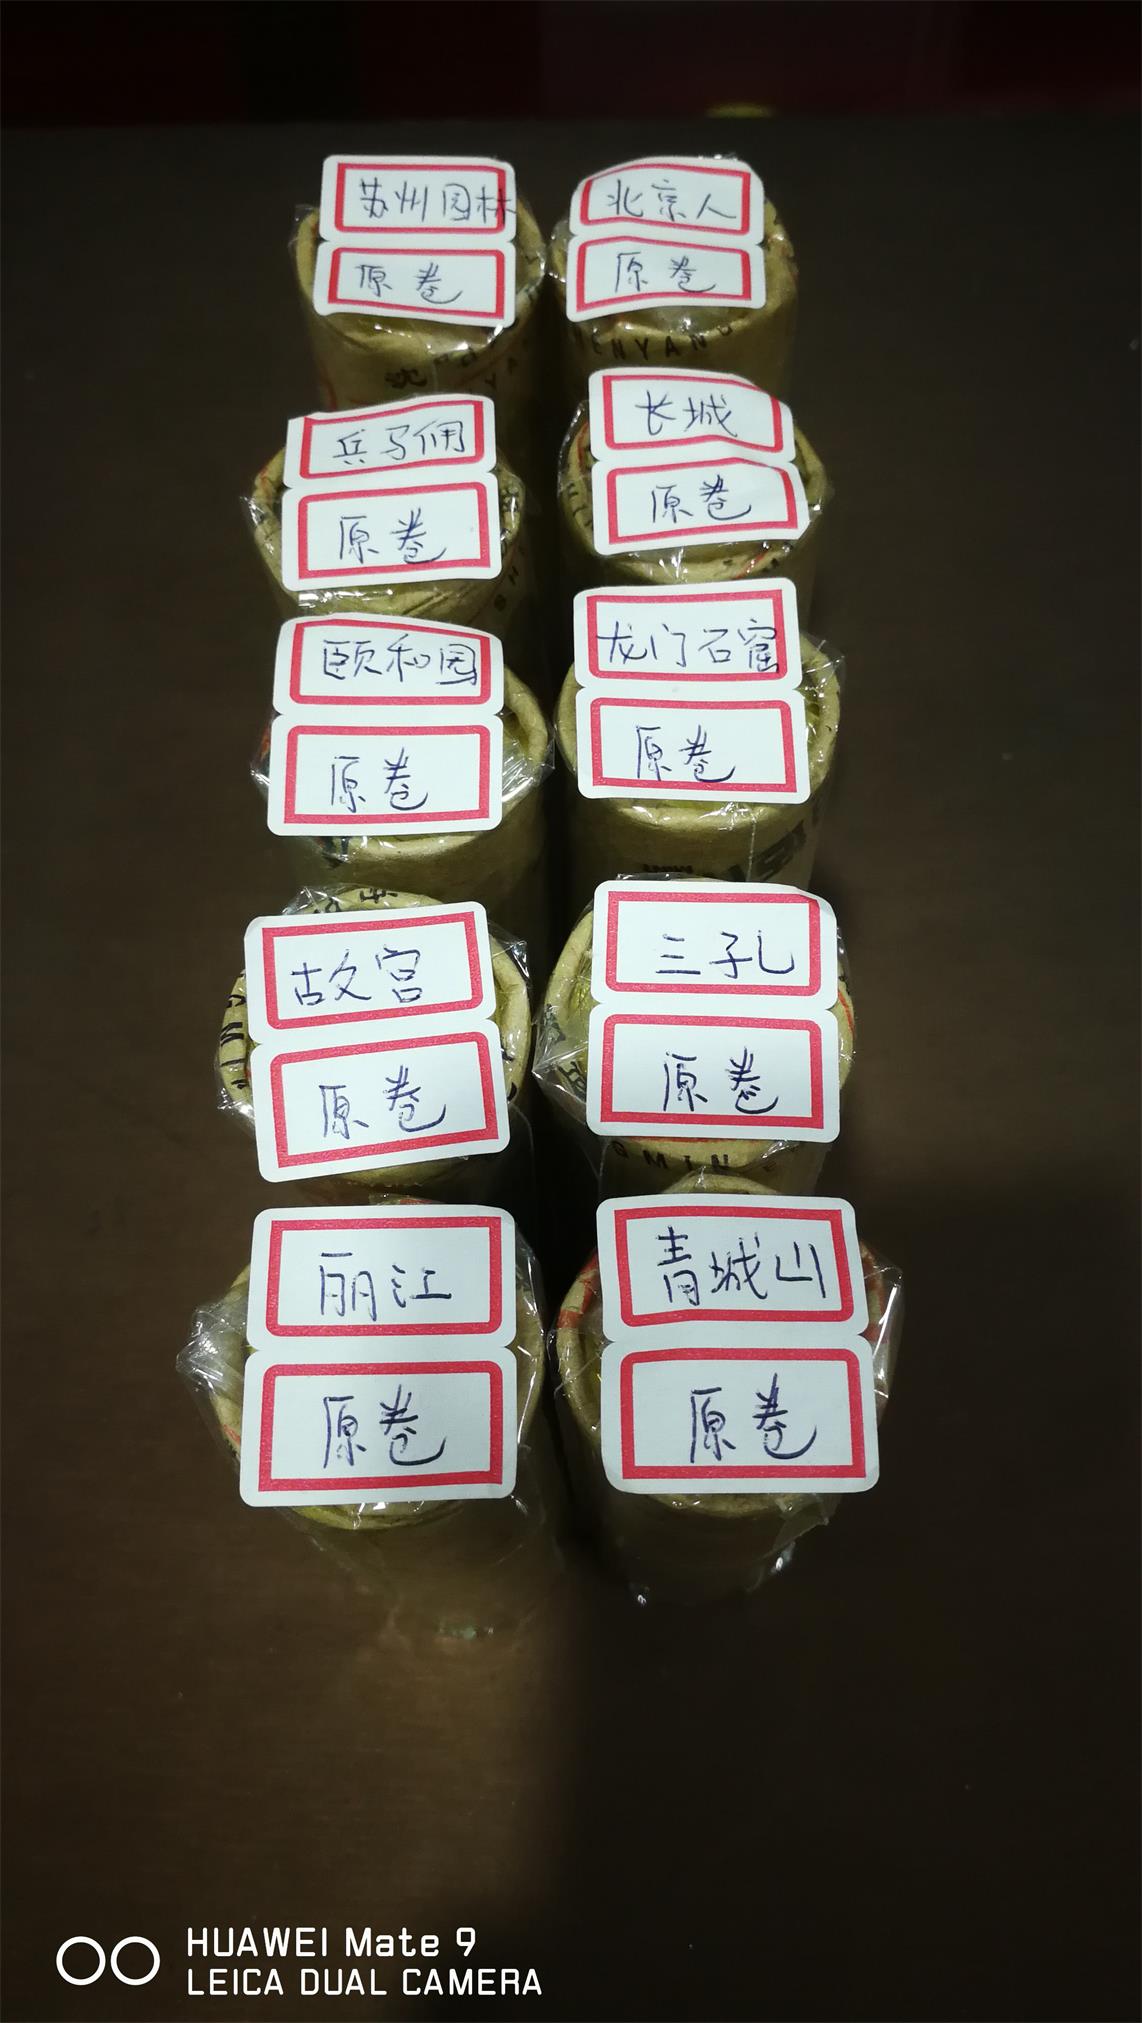 苏州园林
原卷
北京人
原卷
兵马俑
原卷
长城
原卷
颐和园
原卷
龙门石窟
原卷
故宫
原卷
三孔
原卷
丽江
原卷
青城山
原卷
HUAWEI Mate 9
LEICA DUAL CAMERA